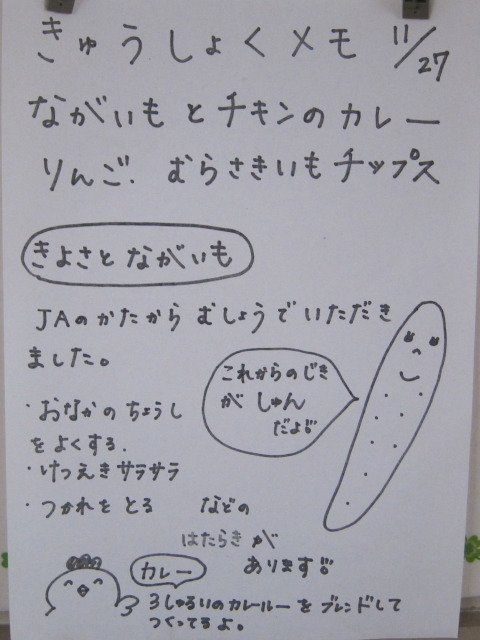 きゅうしょくメモ 11/27
ながいもとチキンのカレー
りんご. むらさきいもチップス
きよさとながいも
JAのかたから むしょうでいただき
ました。
これからのじき
が しゅん
だよ!!
・おなかのちょうし
をよくする.
・けつえきサラサラ
・つかれをとる などの
はたらきが
あります!!
カレー
3しゅるいのカレールーをブレンドして
つくってるよ。